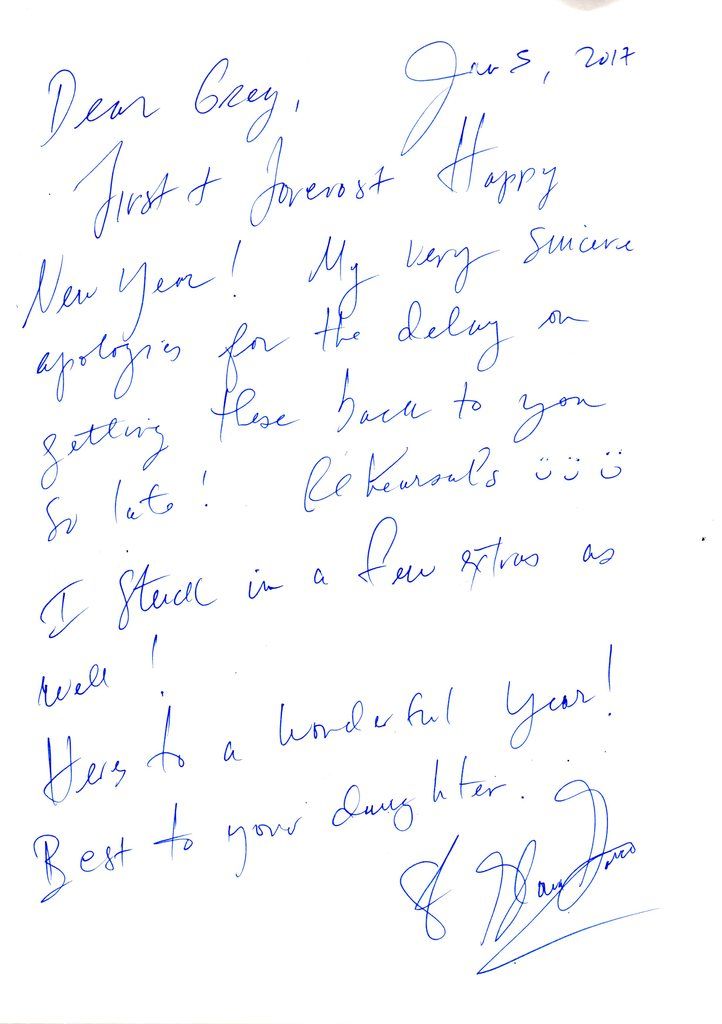 Dear Greg, Jan 5, 2017
First & Foremost Happy
New Year! My very sincere
apologies for the delay on
getting these back to you
so late! Rehearsals
I stuck in a few extras as
well!
Heres to a wonderful year!
Best to your daughter.